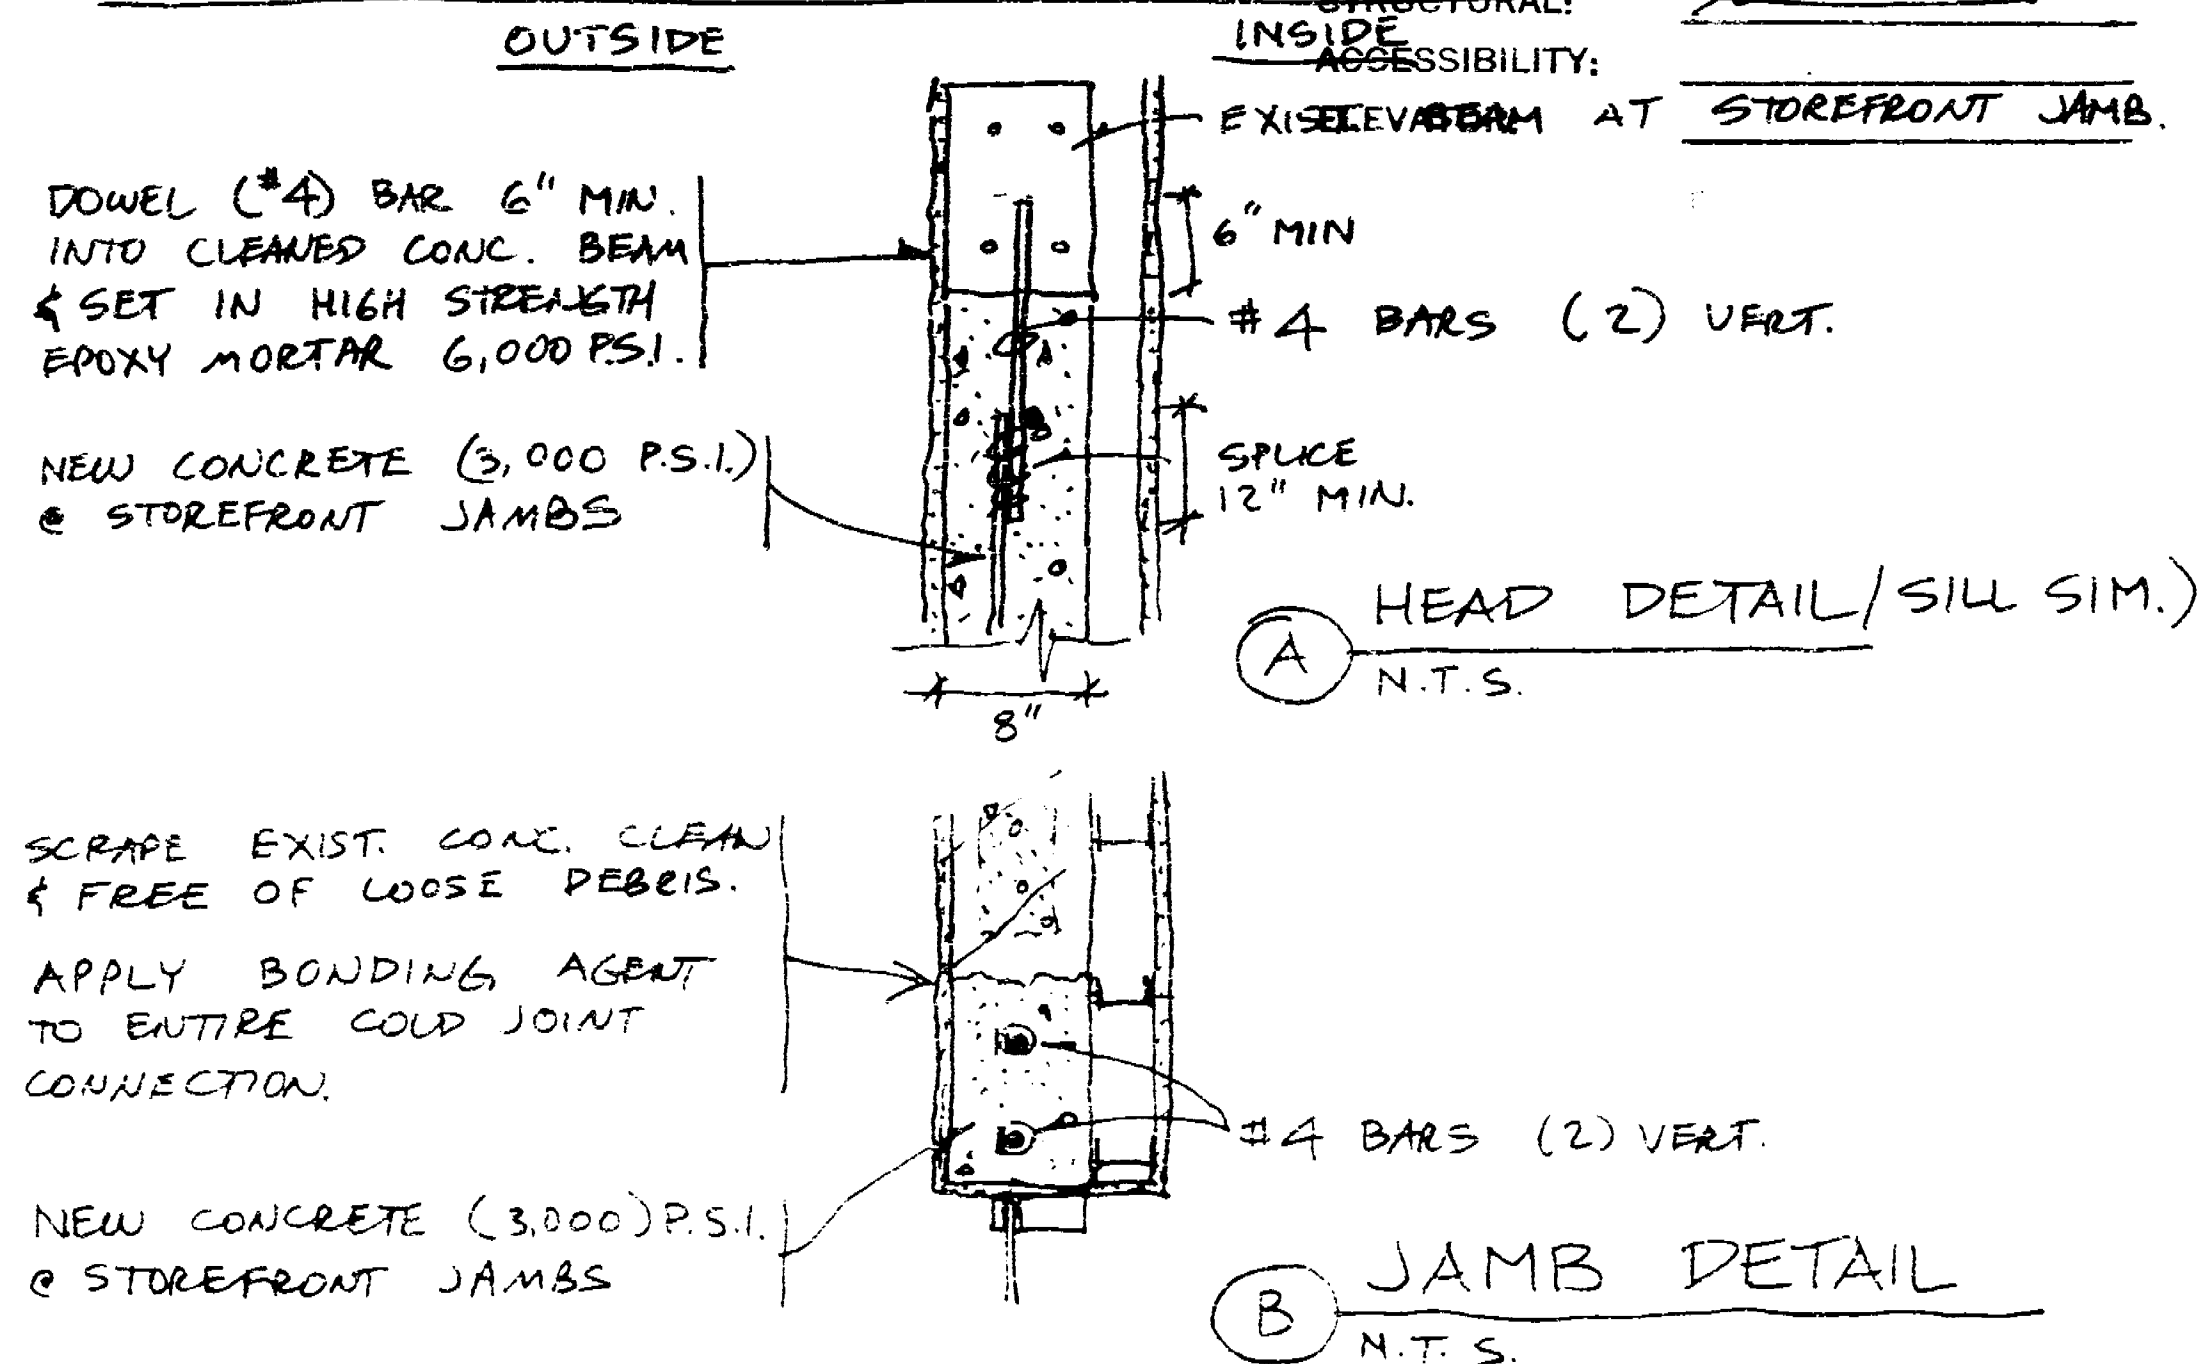 STRUCTURAL:
OUTSIDE
INSIDE
ACCESSIBILITY:
EXIST. BEAM AT STOREFRONT JAMB.
DOWEL (#4) BAR 6" MIN.
INTO CLEANED CONC. BEAM
& SET IN HIGH STRENGTH
EPOXY MORTAR 6,000 P.S.I.
6" MIN
#4 BARS (2) VERT.
NEW CONCRETE (3,000 P.S.I.)
@ STOREFRONT JAMBS
SPLICE
12" MIN.
A
HEAD DETAIL/SILL SIM.)
N.T.S.
8"
SCRAPE EXIST. CONC. CLEAN
& FREE OF LOOSE DEBRIS.
APPLY BONDING AGENT
TO ENTIRE COLD JOINT
CONNECTION.
#4 BARS (2) VERT.
NEW CONCRETE (3,000) P.S.I.
@ STOREFRONT JAMBS
B
JAMB DETAIL
N.T.S.